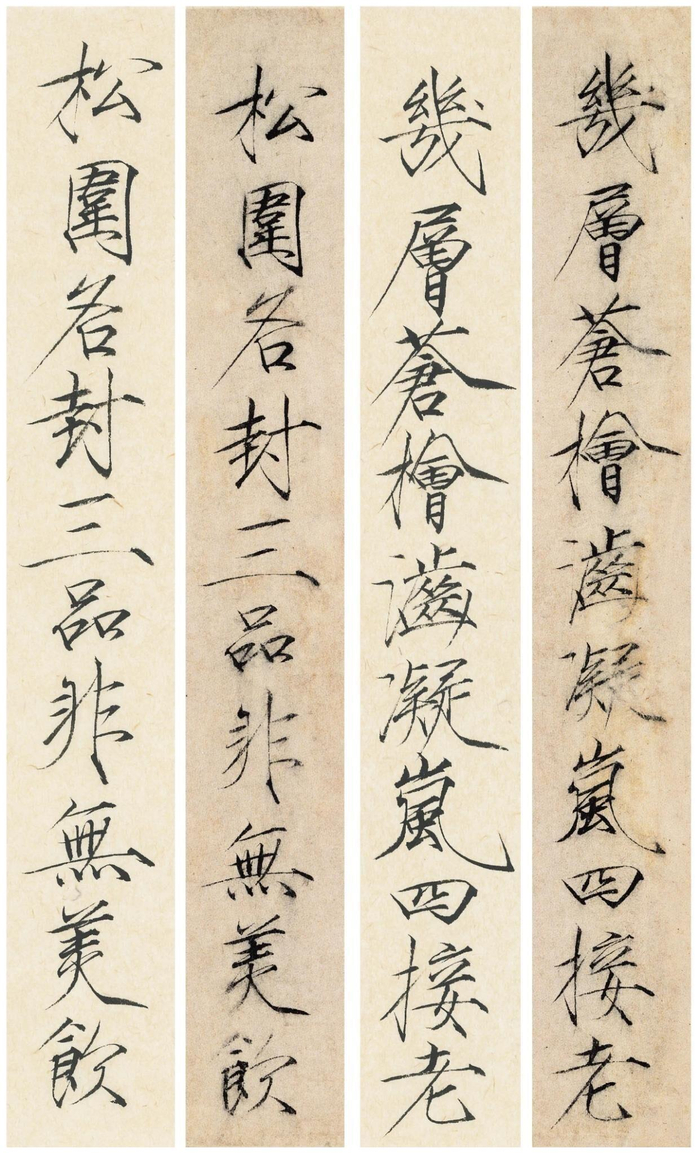 幾層蒼檜凝嵐四接老
幾層蒼檜凝嵐四接老
松圍各封三品非無美飲
松圍各封三品非無美飲